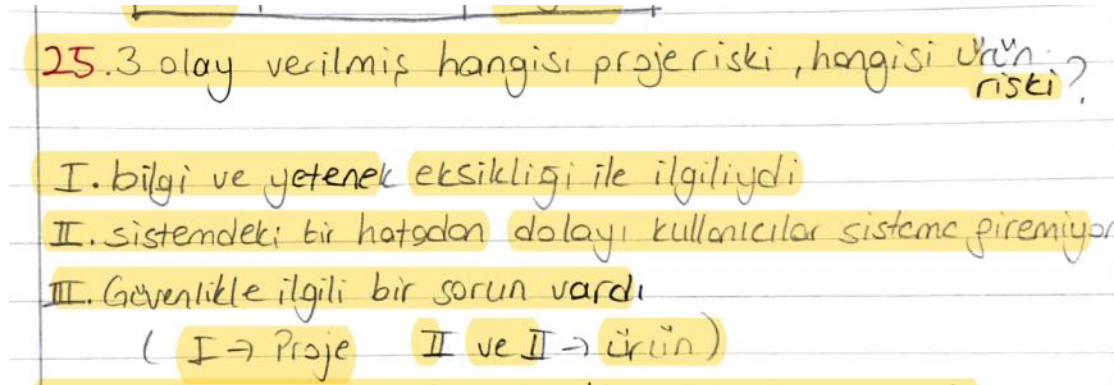 25. 3 olay verilmiş hangisi proje riski, hangisi ürün riski?
I. bilgi ve yetenek eksikliği ile ilgiliydi
II. sistemdeki bir hatadan dolayı kullanıcılar sisteme giremiyor
III. Güvenlikle ilgili bir sorun vardı
( I → Proje II ve II → ürün)